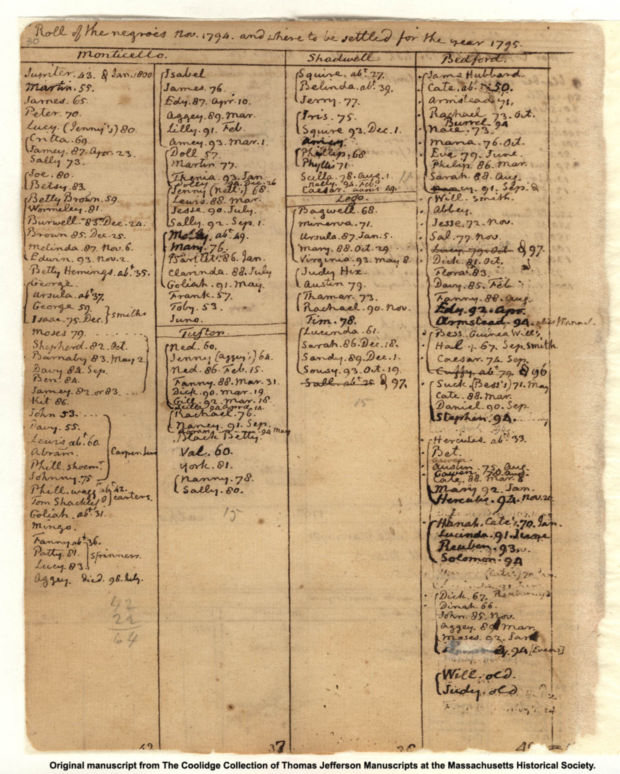 Roll of the negroes Nov. 1794. and where to be settled for the year 1795.
30
Monticello.
Jupiter. 43. & Jan. 1800
Martin. 55.
James. 65
Peter. 70
Lucy. (Jenny's) 80
Critta. 69
Jamey. 87. Apr. 23.
Sally 73.
Joe. 80.
Betsy. 83.
Betty Brown. 59
Wormeley. 81
Burwell. 83. Dec. 24.
Brown. 85. Dec. 25.
Melinda. 87. Nov. 6.
Edwin. 93. Nov. 2.
Betty Hemings. abt. 35.
George
Ursula. abt. 37.
George 59
Isaac. 75. Dec.
Smiths
Moses 79
Shepherd. 82. Oct.
Barnaby 83. May 2
Davy 84. Sep.
Ben. 84.
Jamey. 82. or 83.
Kit 86.
John 53.
Davy. 55.
Lewis abt. 60.
Abram.
Phill. shoemr.
Johnny. 75
Carpenters
Phill. wagg. abt. 42.
Tom Shackelfd
carters.
Goliah. abt. 31.
Mingo.
Fanny abt. 36.
Patty. 81.
Lucy. 83
Spinners
Aggey. died. 98. July.
42
22
64
Isabel
James. 76.
Edy. 87. Apr. 10.
Aggey. 89. Mar.
Lilly. 91. Feb
Amey. 93. Mar. 1.
Doll 57.
Martin 77.
Thenia. 93. Jan
Dolley. 94. Dec. 26
Jenny (Ned's) 68
Lewis. 88. Mar.
Jesse. 90. July.
Sally. 92. Sep. 1.
Molly. abt. 49.
Mary. 76.
Bartlet. 86. Jan.
Clarinda. 88. July
Goliah. 91. May.
Frank. 57.
Toby. 53.
Juno.
Tufton.
Ned. 60.
Jenny (Aggy's) 64.
Ned. 86. Feb. 15.
Fanny. 88. Mar. 31.
Dick. 90. Mar. 19.
Gill. 92. Mar. 18
Rachael. 76.
Nancy. 91. Sep.
Black Betty.
Val. 60.
York. 81.
Nanny. 78
Sally. 80.
15
Shadwell
Squire. abt. 27.
Belinda. abt. 39.
Jerry. 77.
Iris. 75.
Squire 93. Dec. 1.
Phillip. 68
Phyllis 71.
Scilla. 78. Aug. 1
Caesar.
Lego.
Bagwell. 68.
Minerva. 71.
Ursula. 87. Jan. 5.
Mary. 88. Oct. 29
Virginia. 93. May 8
Judy Hix
Austin 79.
Thamar. 73.
Rachael. 90. Nov.
Tim. 78.
Lucinda. 61.
Sarah. 86. Dec. 18.
Sandy. 89. Dec. 1.
Sousy. 93. Oct. 19.
Sall. abt. 25 & 97.
15
Bedford.
Jame Hubbard
Cate. abt. 50.
Armstead 71.
Rachael 73. Oct.
Burrel. 94
Nace. 73.
Maria. 76. Oct.
Eve. 79. June.
Philip. 86. Mar.
Sarah. 88. Aug.
91. Sep.
Will. Smith.
Abbey.
Jesse. 72. Nov.
Sal. 77. Nov.
Lucy. 79. Oct & 97.
Dick. 81. Oct.
Flora. 83.
Davy. 85. Feb.
Fanny. 88. Aug.
Edy. 92. Apr.
Armstead. 94.
Bess. Guinea Will's
Hal. 67. Sep. Smith
Caesar. 74. Sep.
Cuffy. abt. 79. & 96
Suck (Bess's) 71. May
Cate. 88. Mar.
Daniel. 90. Sep.
Stephen. 94.
Hercules. abt. 33.
Bet.
Austin. 75. Aug.
Cate. 88. Mar. 8
Mary 92. Jan.
Hercules. 94. Nov. 20.
Hanah. Cate's. 70. Jan.
Lucinda. 91.
Reuben. 93.
Solomon. 94
Dick. 67.
Dinah. 66.
John. 85. Nov.
Aggey. 89. Mar.
Moses. 92. Jan
94. [Evans]
Will. old.
Judy. old
Original manuscript from The Coolidge Collection of Thomas Jefferson Manuscripts at the Massachusetts Historical Society.